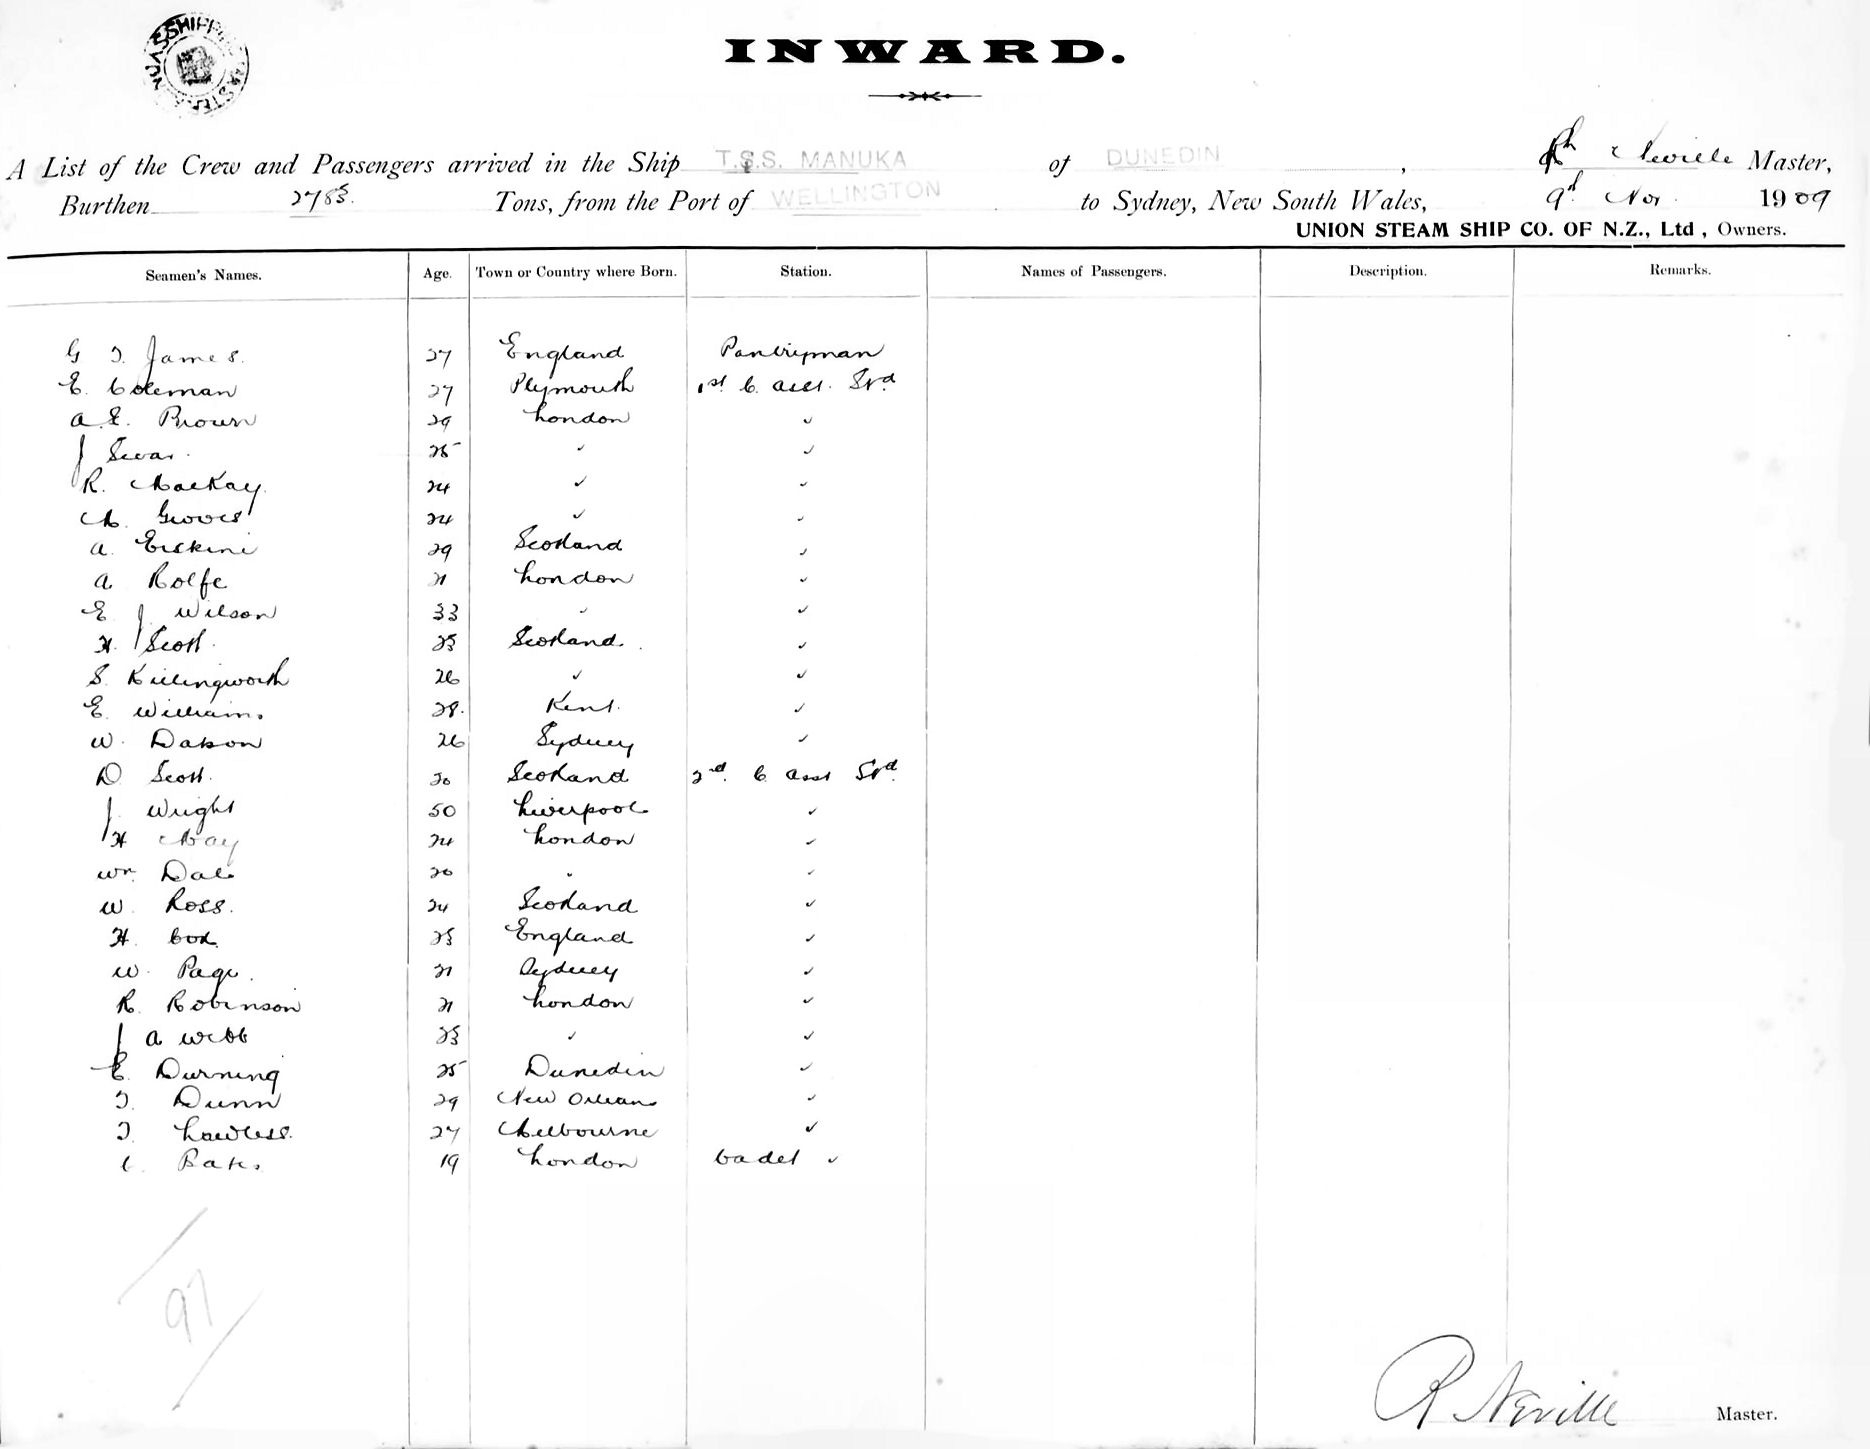 INWARD.
A List of the Crew and Passengers arrived in the Ship T.S.S. MANUKA of DUNEDIN, Neville Master,
Burthen 2785 Tons, from the Port of WELLINGTON to Sydney, New South Wales, 9d Nov. 1909
UNION STEAM SHIP CO. OF N.Z., Ltd, Owners.
Seamen's Names. Age. Town or Country where Born. Station. Names of Passengers. Description. Remarks.
G T. James. 27 England Pantryman
E. Coleman 27 Plymouth 1st C. asst. Srd
A. E. Brown 29 London ✓
J 25 ✓ ✓
R. MacKay 24 ✓ ✓
M. Groves 24 ✓ ✓
A. Erskine 29 Scotland ✓
A Rolfe 21 London ✓
E J Wilson 33 ✓ ✓
H. Scott. 23 Scotland. ✓
S. Killingworth 26 ✓ ✓
E. Williams 28. Kent. ✓
W. Dabson 26 Sydney ✓
D Scott. 20 Scotland 2nd. C. asst Srd.
J. Wright 50 Liverpool ✓
H May 24 London ✓
Wm. Dale 20 " ✓
W. Ross. 24 Scotland ✓
H. Cox. 23 England ✓
W. Page. 21 Sydney ✓
R. Robinson 21 London ✓
J A Webb 23 ✓ ✓
E. Durning 25 Dunedin ✓
T. Dunn 29 New Orleans ✓
T. Lawless. 27 Melbourne ✓
C. Bates 19 London Cadet ✓
97
R Neville Master.